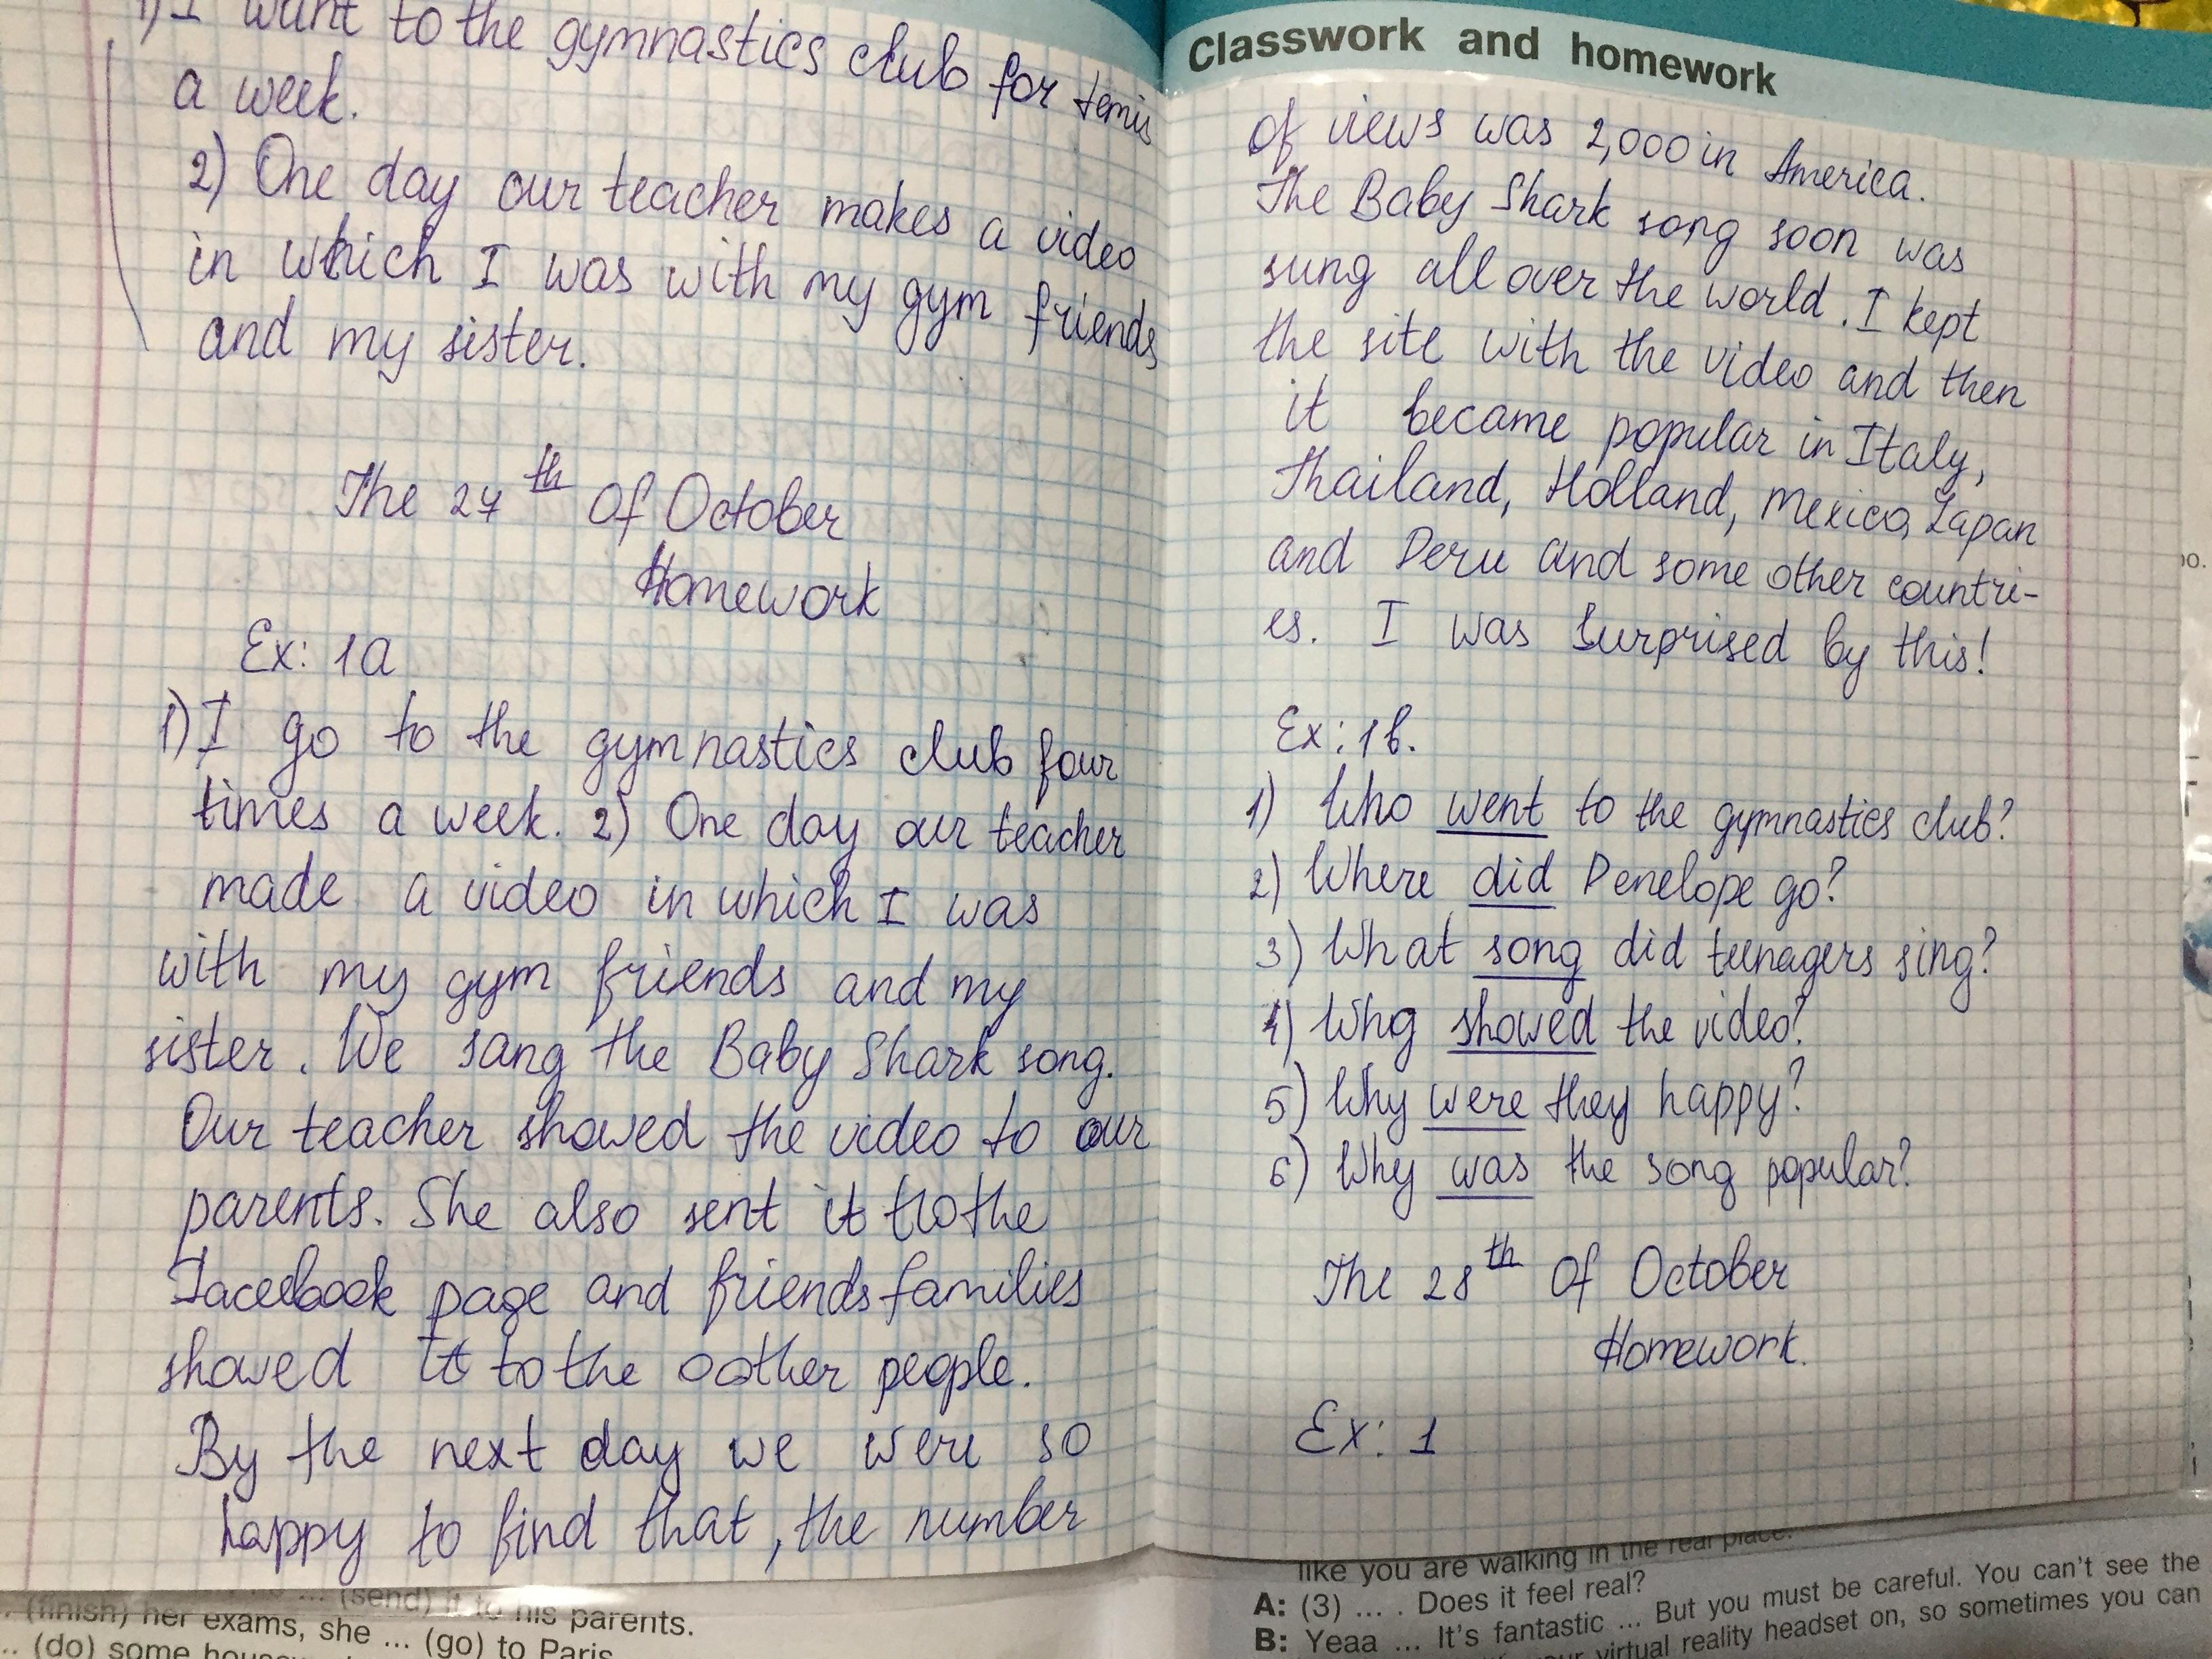 1) I want to the gymnastics club for temis
a week.
2) One day our teacher makes a video
in which I was with my gym friends
and my sister.
The 27th Of October
Homework
Ex: 1a
1) I go to the gymnastics club four
times a week. 2) One day our teacher
made a video in which I was
with my gym friends and my
sister. We sang the Baby Shark song.
Our teacher showed the video to our
parents. She also sent it to the
Facebook page and friends families
showed it to the other people.
By the next day we were so
happy to find that, the number
... (send) it to his parents.
(finish) her exams, she ... (go) to Paris
... (do) some
Classwork and homework
of views was 2,000 in America.
The Baby Shark song soon was
sung all over the world. I kept
the site with the video and then
it became popular in Italy,
Thailand, Holland, Mexico, Japan
and Peru and some other countri-
es. I was surprised by this!
Ex: 1b.
1) Who went to the gymnastics club?
2) Where did Penelope go?
3) What song did teenagers sing?
4) Who showed the video?
5) Why were they happy?
6) Why was the song popular?
The 28th Of October
Homework.
Ex: 1
like you are walking in the real place.
A: (3) ... . Does it feel real?
B: Yeaa ... It's fantastic ... But you must be careful. You can't see the
your virtual reality headset on, so sometimes you can